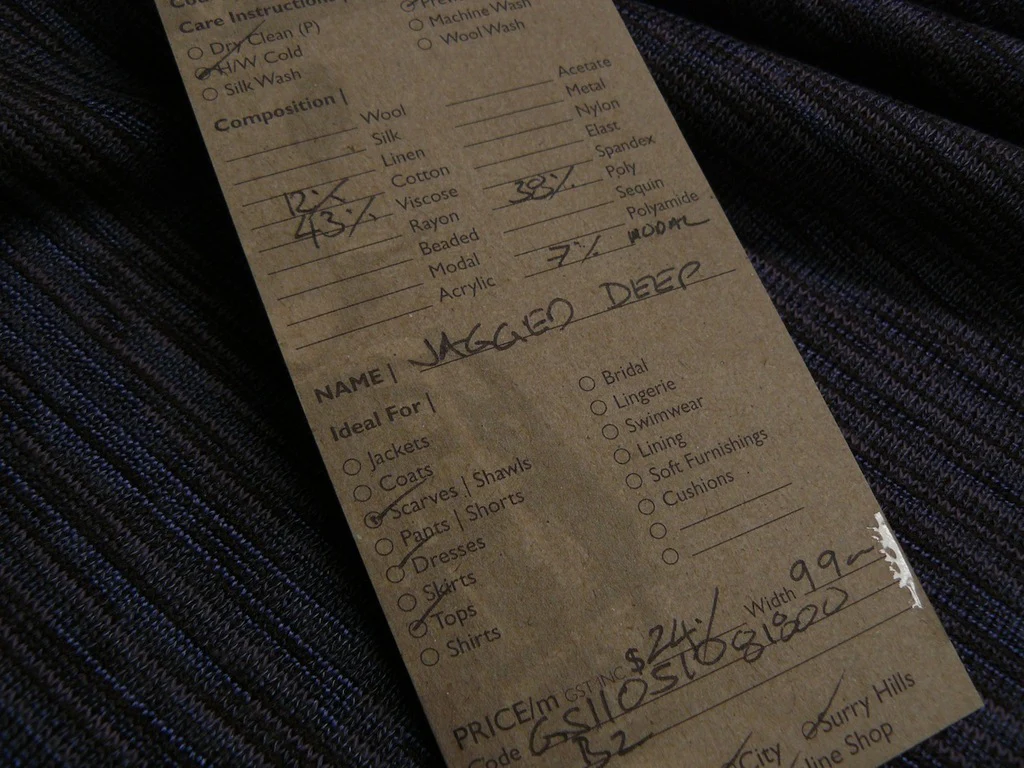 Care Instructions
Dry Clean (P)
H/W Cold
Silk Wash
Machine Wash
Wool Wash
Composition |
Wool
Silk
Linen
12% Cotton
43% Viscose
Rayon
Beaded
Modal
Acrylic
Acetate
Metal
Nylon
Elast
Spandex
38% Poly
Sequin
Polyamide
7% MODAL
NAME | JAGGED DEEP
Ideal For |
Jackets
Coats
Scarves | Shawls
Pants | Shorts
Dresses
Skirts
Tops
Shirts
Bridal
Lingerie
Swimwear
Lining
Soft Furnishings
Cushions
PRICE/m GST INC $24 Width 99
Code
B2
City Surry Hills
Shop